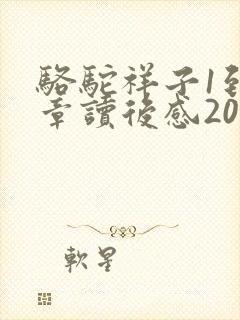 駱駝祥子1到
章讀後感20
軟星